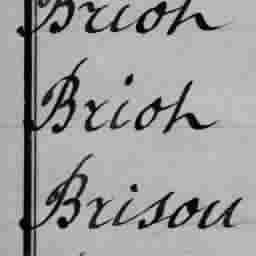 Brioh
Brioh
Brisou